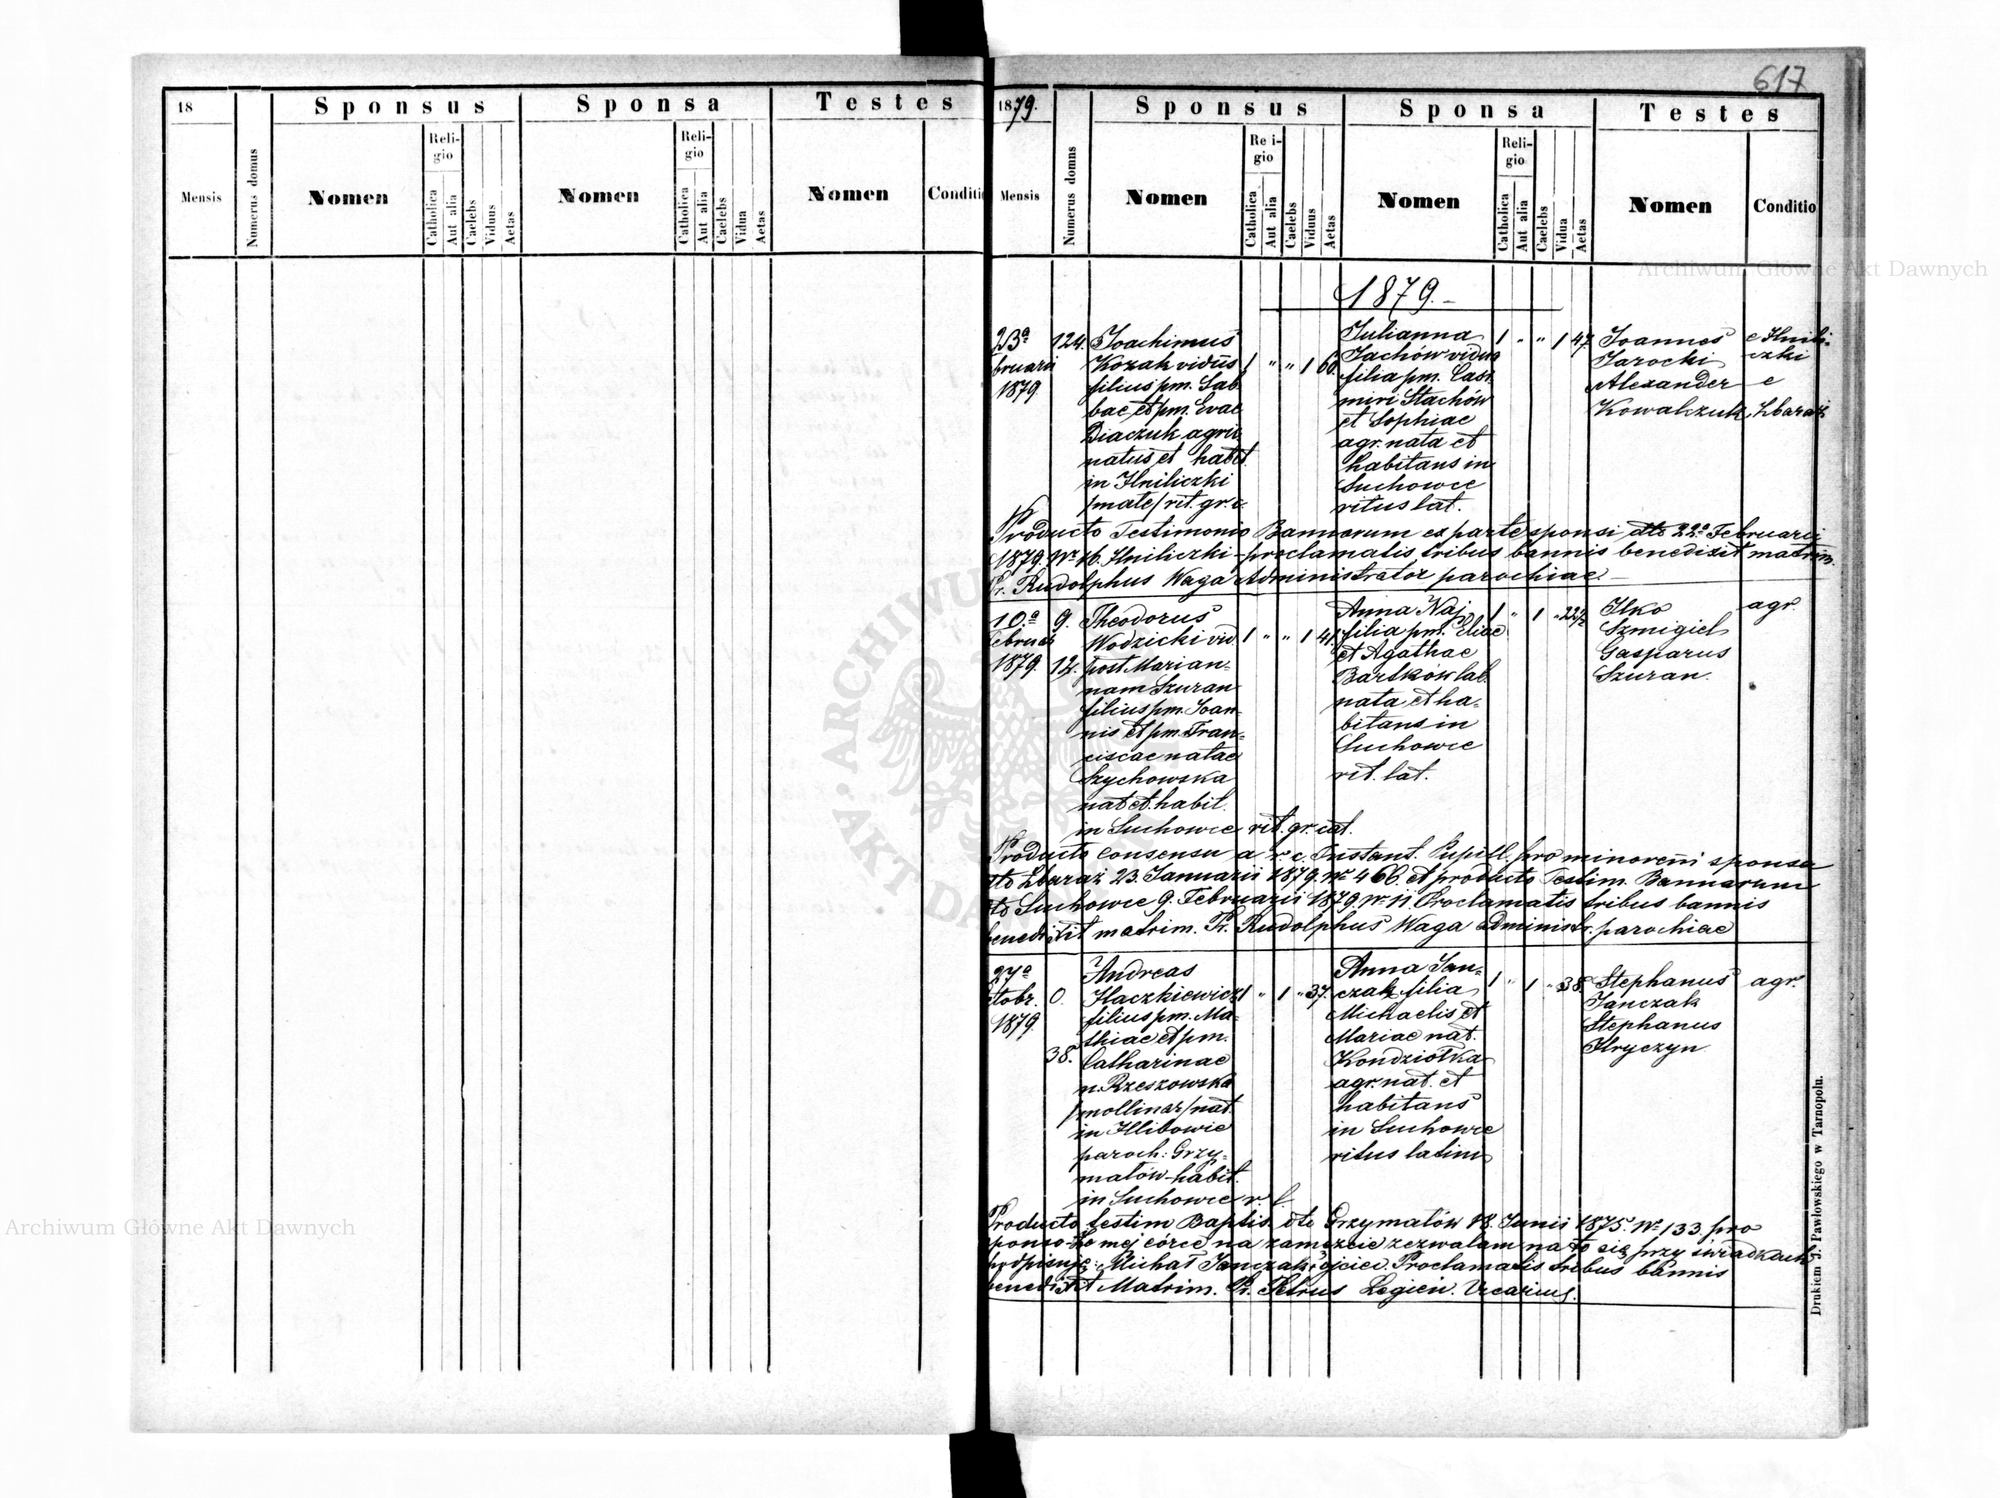 617
18
Mensis
Numerus domus
Sponsus
Nomen
Religio
Catholica
Aut alia
Caelebs
Viduus
Aetas
Sponsa
Nomen
Religio
Catholica
Aut alia
Caelebs
Vidua
Aetas
Testes
Nomen
Conditi
1879.
Mensis
Numerus domns
Sponsus
Nomen
Re i-
gio
Catholica
Aut alia
Caelebs
Viduus
Aetas
Sponsa
Nomen
Reli-
gio
Catholica
Aut alia
Caelebs
Vidua
Aetas
Testes
Nomen
Conditio
1879.
23ª
bruarii
1879.
124.
Joachimus
Kozak viduus
filius pm. Sab
bae et pm. Evae
Diaczuk agric
natus et habit.
in Hniliczki
/mate/ rit. gr. c.
1 " " 1 60.
Julianna
Stachów vidua
filia pm. Casi
miri Stachów
et Sophiae
agr. nata et
habitans in
Suchowce
ritus lat.
1 " " 1 47
Joannes
Jarocki
Alexander
Kowalczuk
e Hnili-
czki
e
Zbaraż
Producto Testimonio Bannorum ex parte sponsi dto 22ª Februarii
1879. Nr. 16. Hniliczki - proclamatis tribus bannis benedixit matrim.
Pr. Rudolphus Waga Administrator parochiae.
10.ª
Februar
1879
9.
12.
Theodorus
Wodzicki vid.
post Marian-
nam Szuran
filius pm. Joan-
nis et pm. Fran-
ciscae natae
Szychowska
nat et. habit.
in Suchowce rit. gr. cat.
1 " " 1 41.
Anna Naj
filia pm. Eliae
et Agathae
Bartków lat.
nata et ha-
bitans in
Suchowce
rit. lat.
1 " 1 " 22½
Ilko
Szmigiel
Gasparus
Szuran.
agr.
Producto consensu a r. c. Instant. Pupill. pro minoreni sponsa
dto Zbaraż 23. Januarii 1879. Nr. 466. et producto Testim. Bannorum
dto Suchowce 9. Februarii 1879. Nr. 11. Proclamatis tribus bannis
benedixit matrim. Pr. Rudolphus Waga administr. parochiae
27ª
ctobr.
1879.
0.
38.
Andreas
Haczkiewicz
filius pm. Ma-
thiae et pm.
Catharinae
n. Rzeszowska
/mollinar/ nat.
in Hlibowie
paroch: Grzy-
małów habit.
in Suchowce r. l.
1 " 1 " 37.
Anna Jan-
czak filia
Michaelis et
Mariae nat.
Kondziołka
agr. nat. et
habitans
in Suchowce
ritus latini
1 " 1 " 38.
Stephanus
Janczak
Stephanus
Hryczyn
agr.
Producto testim Baptis. dto Grzymałów 18. Junii 1875. Nr. 133. pro
sponso - Ze mej córce na zamęzcie zezwalam na to się przy świadkach
podpisuję: Michał Janczak ojciec. Proclamatis tribus bannis
benedixit Matrim. Pr. Petrus Legień. Vicarius.
Drukiem J. Pawłowskiego w Tarnopolu.
Archiwum Główne Akt Dawnych
Archiwum Główne Akt Dawnych
ARCHIWUM
AKT DA